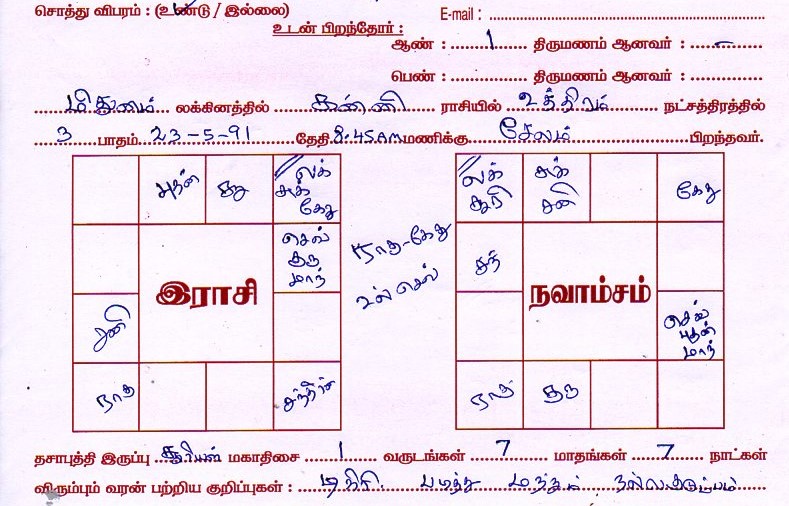 சொத்து விபரம் : (உண்டு / இல்லை)
E-mail :
உடன் பிறந்தோர் :
ஆண் : 1 திருமணம் ஆனவர் : –
பெண் : திருமணம் ஆனவர் :
மிதுனம் லக்கினத்தில் கன்னி ராசியில் உத்திரம் நட்சத்திரத்தில்
3 பாதம் 23-5-91 தேதி 8.45AM மணிக்கு சேலம் பிறந்தவர்.
புதன்
லக்
சுக்
கேது
செவ்
குரு
மாந்
இராசி
சனி
ராகு
சந்திரன்
ராகு-கேது
லக்
சூரி
சுக்
சனி
கேது
சந்
நவாம்சம்
செவ்
புதன்
மாந்
ராகு
குரு
தசாபுத்தி இருப்பு சூரியன் மகாதிசை 1 வருடங்கள் 7 மாதங்கள் 7 நாட்கள்
விரும்பும் வரன் பற்றிய குறிப்புகள் : டிகிரி படித்த மற்றும் நல்லகுடும்பம்